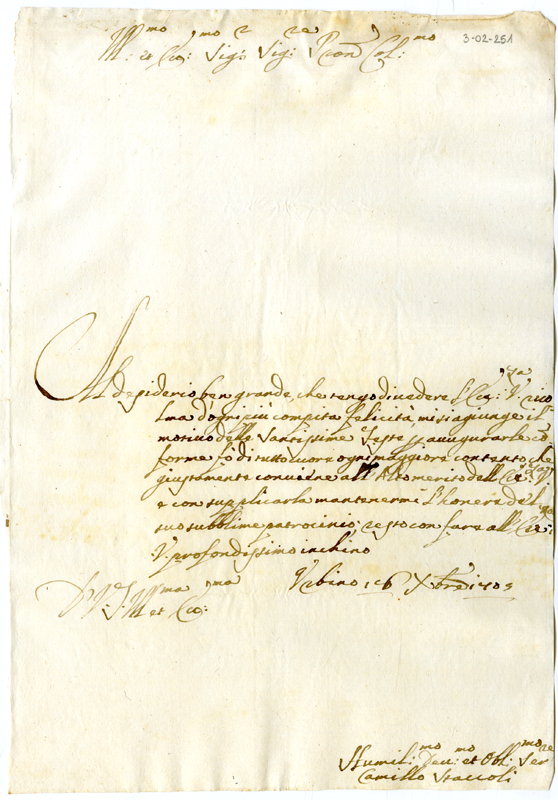 3-02-251
Ill:mo et Ecc:mo Sig:r Sig:r Pron Col:mo
Al desiderio ben grande, che tengo di vedere l'Ecc:za V. ricol
ma d'ogni più compita felicità, mi si agiunge il
motivo delle Santissime Feste p auugurarle, co
forme fò di tutto cuore ogni maggiore contento, che
giustamente conviene all'Alto merito dell'Ecc:za V.
e con supplicarla mantenermi l'honore del
suo sublime patrocinio, resto con fare all'Ecc:za
V. profondissimo inchino
Urbino 16 Xbre 1705
D. V. Ill:ma et Ecc:ma
Humil:mo Deu:mo et Obl:mo Ser:re
Camillo Staccoli